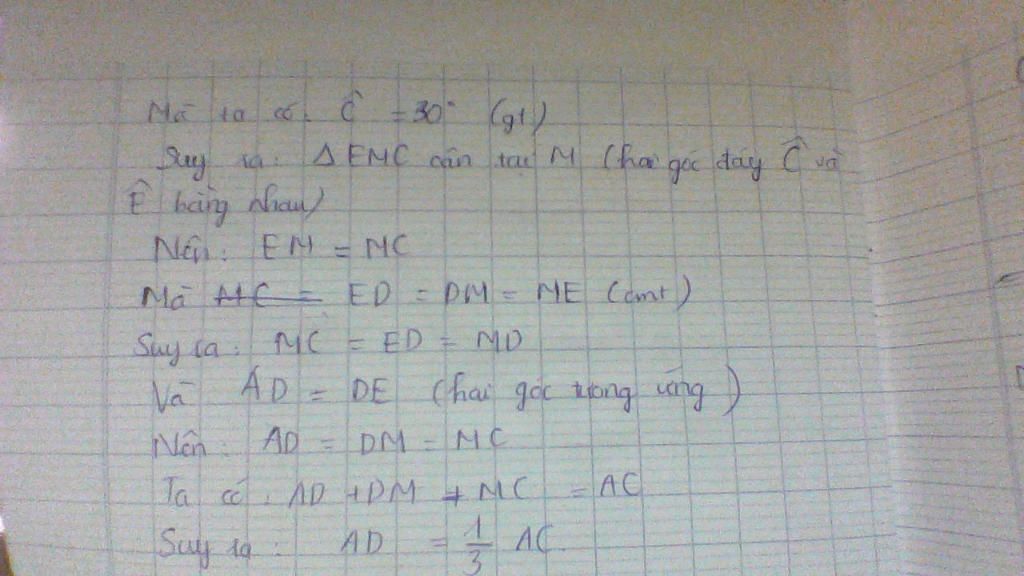 Mà ta có. Ĉ = 30° (gt)
Suy ra: ΔEMC cân tại M (hai góc đáy Ĉ và
Ê bằng nhau)
Nên: EM = MC
Mà MC = ED = DM = ME (cmt)
Suy ra: MC = ED = MD
Và AD = DE (hai góc tương ứng)
Nên: AD = DM = MC
Ta có. AD + DM + MC = AC
Suy ra: AD = 1/3 AC